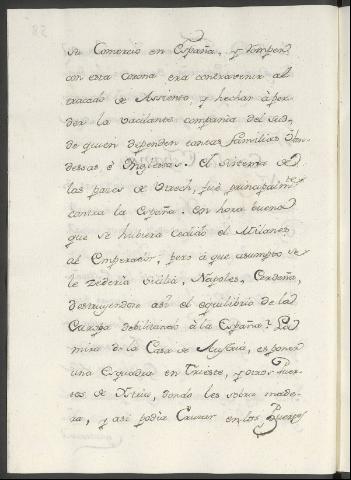 su Comercio en España, y romper
con esta corona era contravenir al
tratado de Assiento, y hechar à per
der la vacilante compañia del Sud,
de quien dependen tantas familias Olan
desas è Inglesas. El sistema de
las pazes de Utrech, fuè principalm.te
contra la España. en hora buena
que se hubiera cedido el Milanes
al Emperador, pero à que asumpto se
le zederia Sicilia, Napoles, Cerdeña,
destruyendose asi el equilibrio de la
Europa debilitando à la España? La
mira de la Casa de Austria, es poner
una Esquadra en Trieste, y otros Puer
tos de Istria, donde les sobra made
ra, y asi podia Cruzar en los Puertos